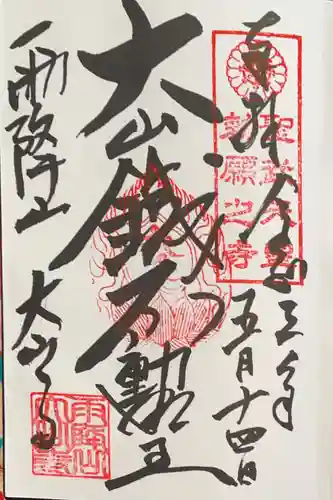 奉拝 令和三年
五月十四日
聖武天皇
勅願之寺
大山鐵不動王
雨降山 大山寺
雨降山